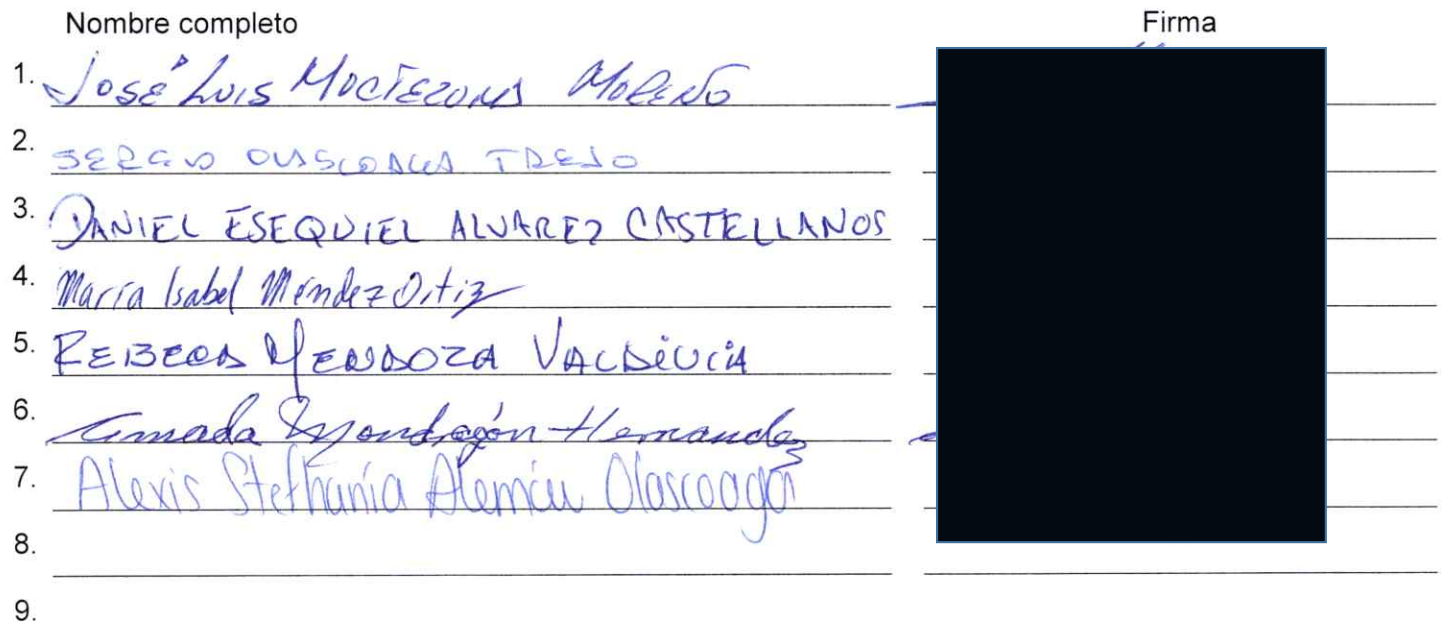 Nombre completo Firma
1. José Luis Moctezuma Moreno
2. SERGIO OLASCOAGA TREJO
3. DANIEL ESEQUIEL ALVAREZ CASTELLANOS
4. María Isabel Méndez Ortiz
5. REBECA MENDOZA VALDIVIA
6. Amada Mondragón Hernandez
7. Alexis Stefhanía Alemán Olascoaga
8.
9.